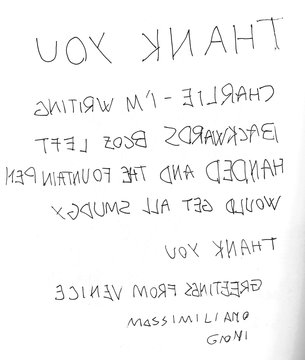 THANK YOU
CHARLIE - I'M WRITING
BACKWARDS BCOZ LEFT
HANDED AND THE FOUNTAIN PEN
WOULD GET ALL SMUDGY
THANK YOU
GREETINGS FROM VENICE
MASSIMILIANO
GIONI